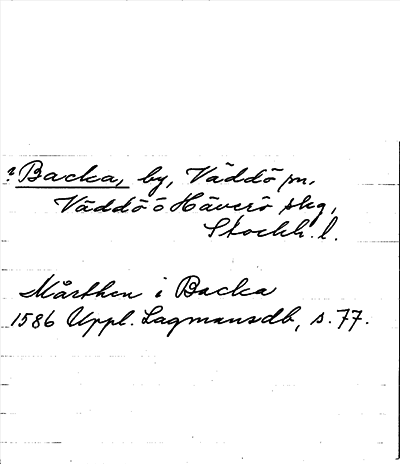 ? Backa, by, Väddö sn.
Väddö o Häverö skg,
Stockh. l.
Mårthen i Backa
1586 Uppl. Lagmansdb, s. 77.